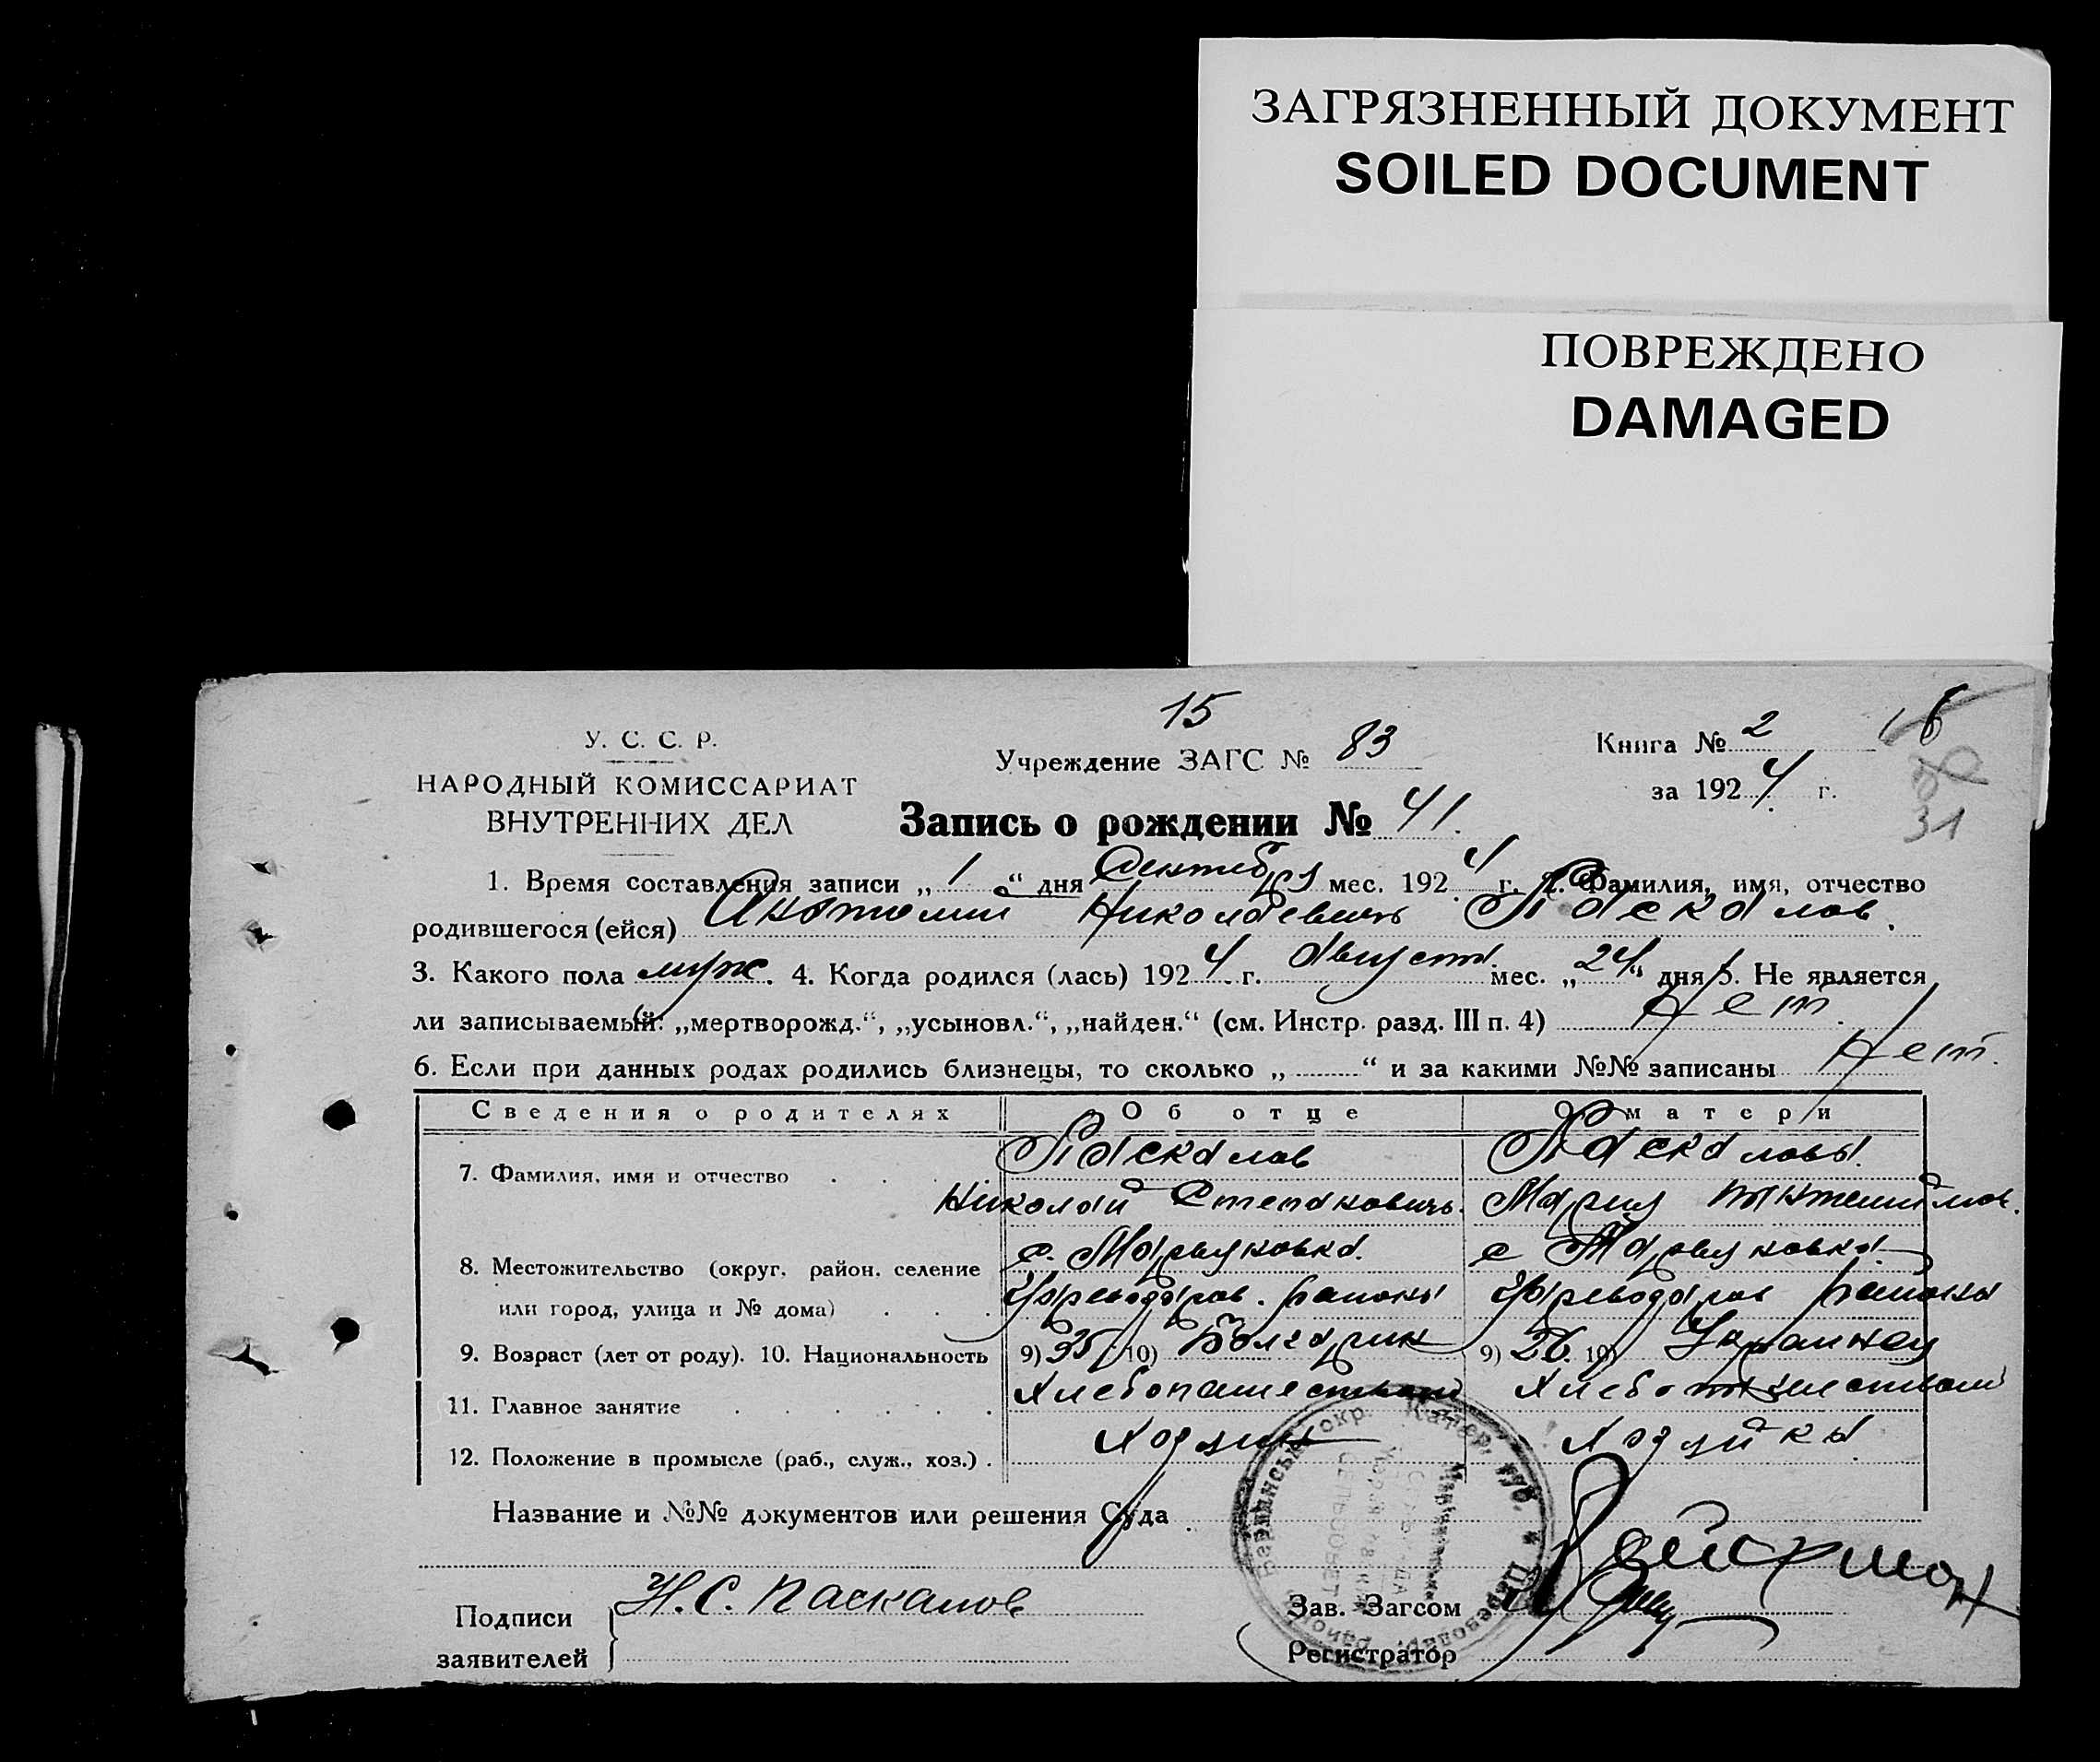 ЗАГРЯЗНЕННЫЙ ДОКУМЕНТ
SOILED DOCUMENT
ПОВРЕЖДЕНО
DAMAGED
15
У. С. С. Р.
НАРОДНЫЙ КОМИССАРИАТ
ВНУТРЕННИХ ДЕЛ
Учреждение ЗАГС № 83
Книга № 2
за 1924 г.
31
Запись о рождении № 41.
1. Время составления записи „ 1 “ дня Сентября мес. 1924 г. 2. Фамилия, имя, отчество
родившегося (ейся) Анатолий Николаевичъ Паскалов.
3. Какого пола муж. 4. Когда родился (лась) 1924 г. Августа мес. „24“ дня 5. Не является
ли записываемый: „мертворожд.“, „усыновл.“, „найден.“ (см. Инстр. разд. III п. 4) Нет.
6. Если при данных родах родились близнецы, то сколько „ “ и за какими №№ записаны Нет.
Сведения о родителях Об отце О матери
7. Фамилия, имя и отчество Паскалов Паскалова.
Николай Степановичъ. Мария
8. Местожительство (округ, район, селение с. Марьяновка. с Марьяновка
или город, улица и № дома) Цареводаров. района Цареводаров района
9. Возраст (лет от роду). 10. Национальность 9) 35 10) Болгарин 9) 26. 10) Украинец
11. Главное занятие Хлебопашество
12. Положение в промысле (раб., служ., хоз.) Хозяин Хозяйка
Название и №№ документов или решения Суда
Подписи
заявителей
Н. С. Паскалов
Зав. Загсом
Регистратор